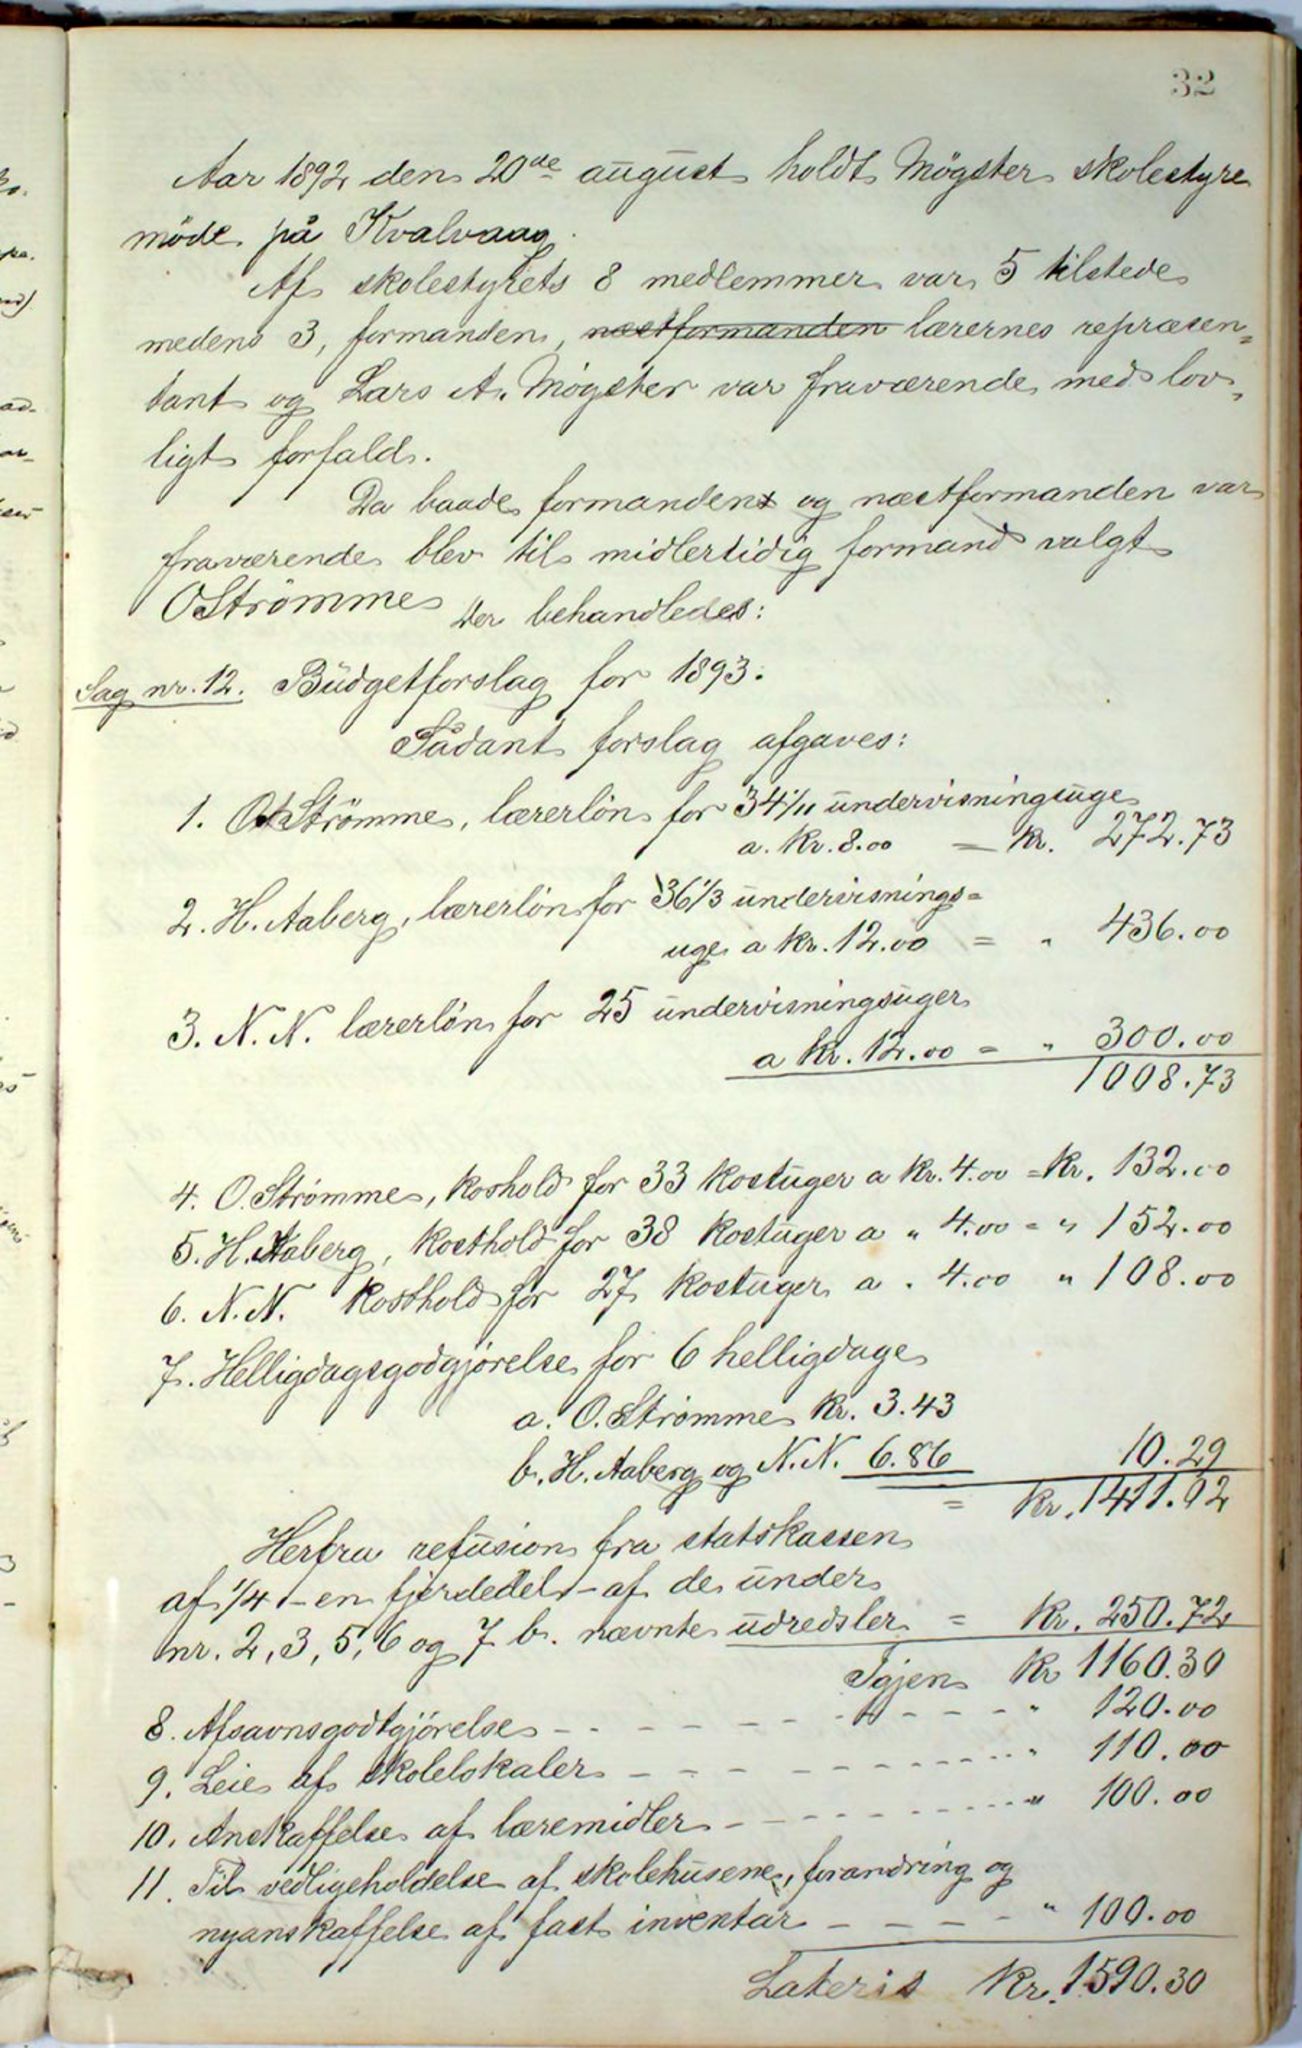 32
Aar 1892 den 20de august holdt Møgster skolestyre
møde på Kvalvaag.
Af skolestyrets 8 medlemmer var 5 tilstede
medens 3, formanden, næstformanden lærernes repræsen=
tant og Lars A. Møgster var fraværende med lov=
ligt forfald.
Da baade formanden og næstformanden var
fraværende blev til midlertidig formand valgt
O Strømme Der behandledes:
Sag nr. 12. Budgetforslag for 1893.
Sådant forslag afgaves:
1. O Strömme, lærerløn for 34 1/11 undervisningsuge
a. Kr. 8.00 = Kr. 272.73
2. H. Aaberg, lærerløn for 36 1/3 undervisnings=
uge a Kr. 12.00 = " 436.00
3. N. N. lærerløn for 25 undervisningsuger
a Kr. 12.00 = " 300.00
1008.73
4. O. Strømme, koshold for 33 kostuger a Kr. 4.00 = Kr. 132.00
5. H. Aaberg, kosthold for 38 kostuger a " 4.00 = " 152.00
6. N. N. kosthold for 27 kostuger a " 4.00 " 108.00
7. Helligdagsgodgjørelse for 6 helligdage
a. O. Strømme Kr. 3.43
b. H. Aaberg og N. N. 6.86 10.29
= Kr. 1411.02
Herfra refusion fra statskassen
af 1/4 - en fjerdedel - af de under
nr. 2, 3, 5, 6 og 7 b. nævnte udredsler = Kr. 250.72
Igjen Kr 1160.30
8. Afsavnsgodtgjørelse - - - - - - " 120.00
9. Leie af skolelokaler - - - - - - " 110.00
10. Anskaffelse af læremidler - - - - - - " 100.00
11. Til vedligeholdelse af skolehusene, forandring og
nyanskaffelse af fast inventar - - - - " 100.00
Lateris Kr. 1590.30